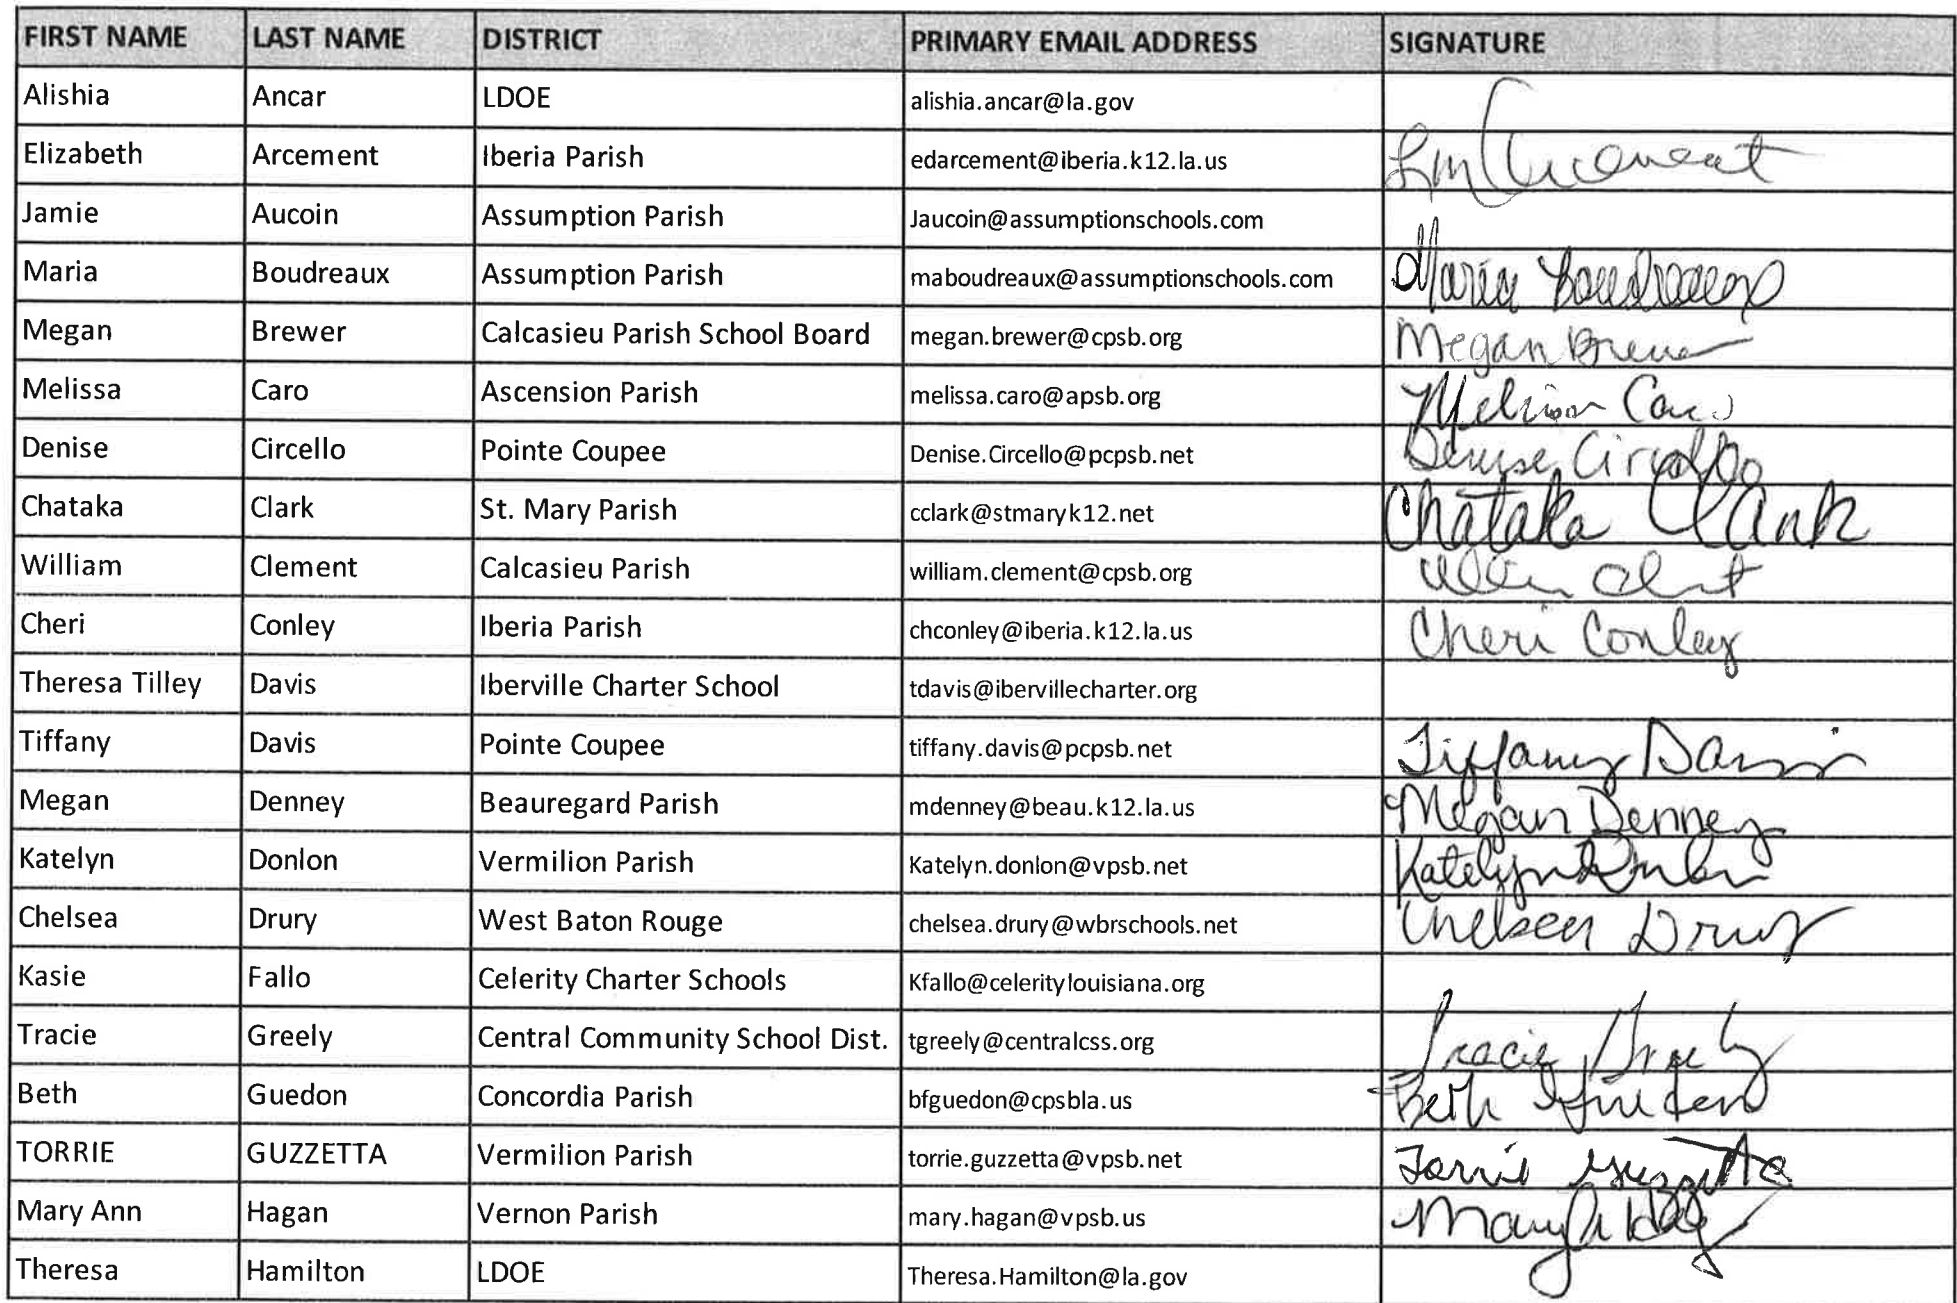 FIRST NAME LAST NAME DISTRICT PRIMARY EMAIL ADDRESS SIGNATURE
Alishia Ancar LDOE alishia.ancar@la.gov
Elizabeth Arcement Iberia Parish edarcement@iberia.k12.la.us
Jamie Aucoin Assumption Parish Jaucoin@assumptionschools.com
Maria Boudreaux Assumption Parish maboudreaux@assumptionschools.com Maria Boudreaux
Megan Brewer Calcasieu Parish School Board megan.brewer@cpsb.org Megan Brewer
Melissa Caro Ascension Parish melissa.caro@apsb.org Melissa Caro
Denise Circello Pointe Coupee Denise.Circello@pcpsb.net Denise Circello
Chataka Clark St. Mary Parish cclark@stmaryk12.net Chataka Clark
William Clement Calcasieu Parish william.clement@cpsb.org
Cheri Conley Iberia Parish chconley@iberia.k12.la.us Cheri Conley
Theresa Tilley Davis Iberville Charter School tdavis@ibervillecharter.org
Tiffany Davis Pointe Coupee tiffany.davis@pcpsb.net Tiffany Davis
Megan Denney Beauregard Parish mdenney@beau.k12.la.us Megan Denney
Katelyn Donlon Vermilion Parish Katelyn.donlon@vpsb.net Katelyn Donlon
Chelsea Drury West Baton Rouge chelsea.drury@wbrschools.net Chelsea Drury
Kasie Fallo Celerity Charter Schools Kfallo@celeritylouisiana.org
Tracie Greely Central Community School Dist. tgreely@centralcss.org Tracie Greely
Beth Guedon Concordia Parish bfguedon@cpsbla.us Beth Guedon
TORRIE GUZZETTA Vermilion Parish torrie.guzzetta@vpsb.net Torrie Guzzetta
Mary Ann Hagan Vernon Parish mary.hagan@vpsb.us Mary
Theresa Hamilton LDOE Theresa.Hamilton@la.gov